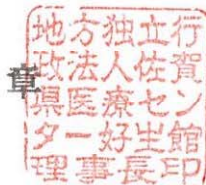 章
地方独立行
政法人佐賀
県医療セン
ター好生館
理事長印